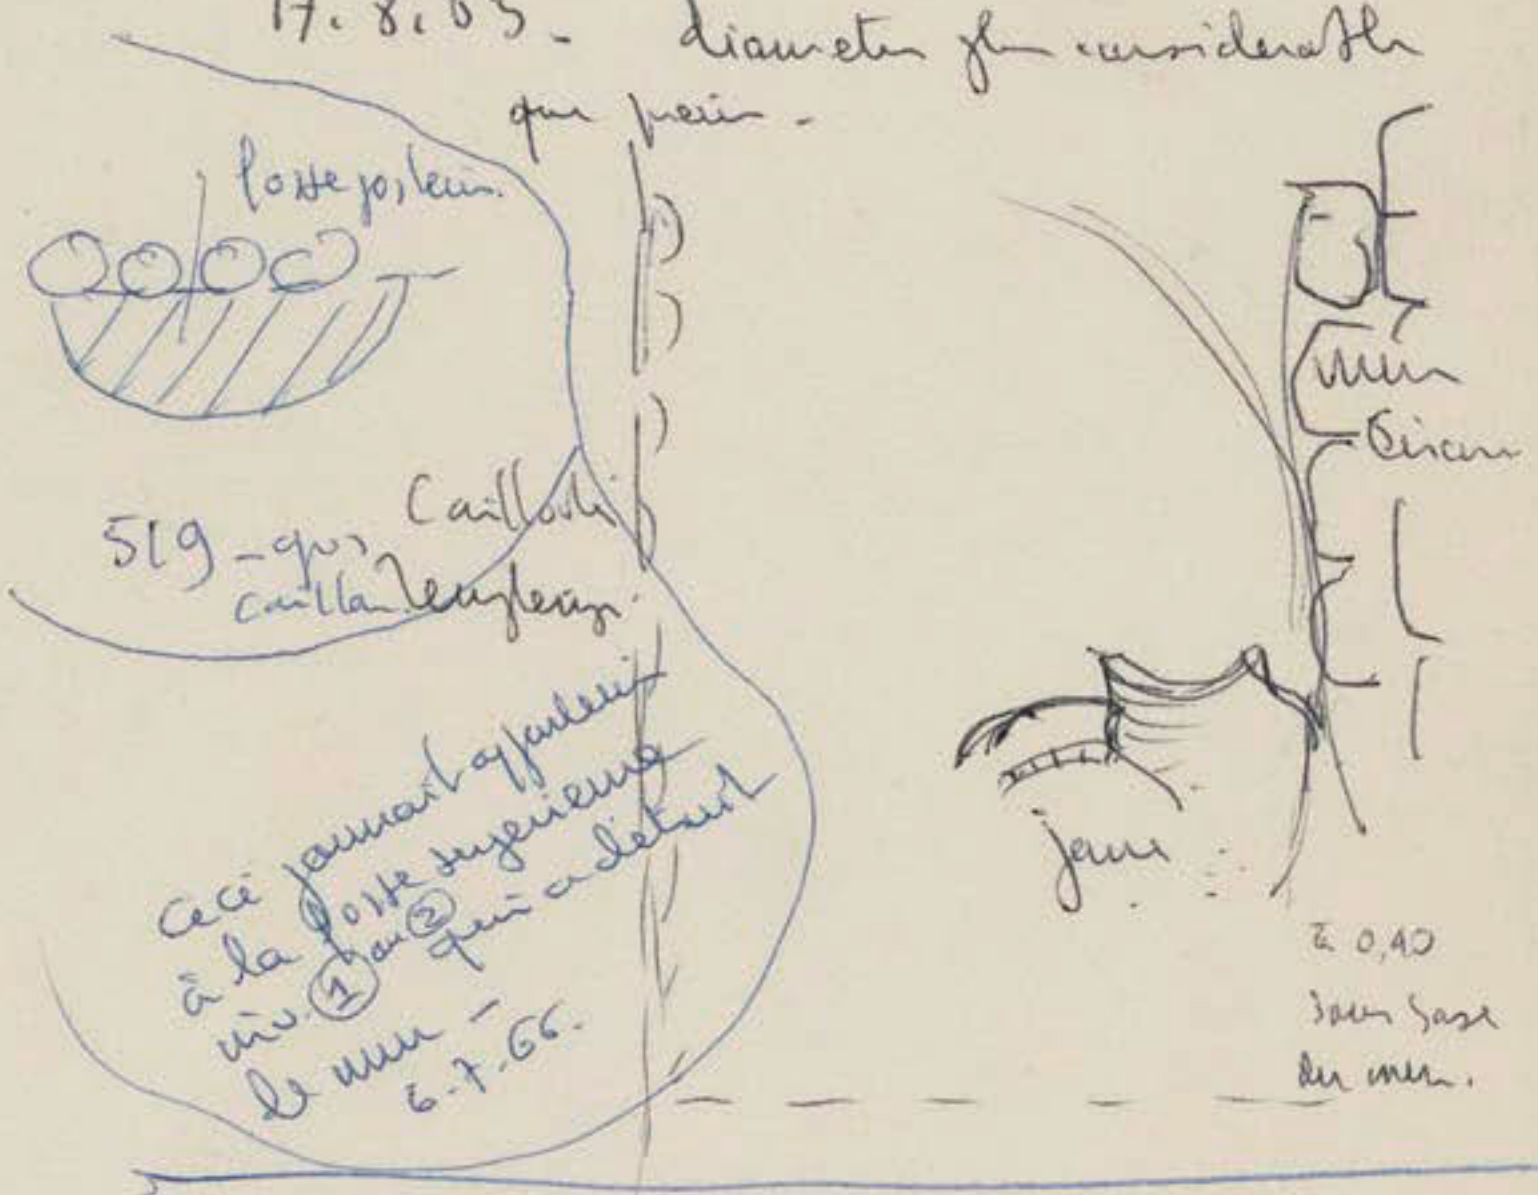 17.8.65 - diametre plus considerable
que
fosse poster.
mur
Cailloutis
519 - gros
caillou
ceci pourrait appartenir
à la fosse superieure
niv. ① ou ② qui a détruit
le mur -
6-7-66.
jarre
à 0,40
sous base
du mur.